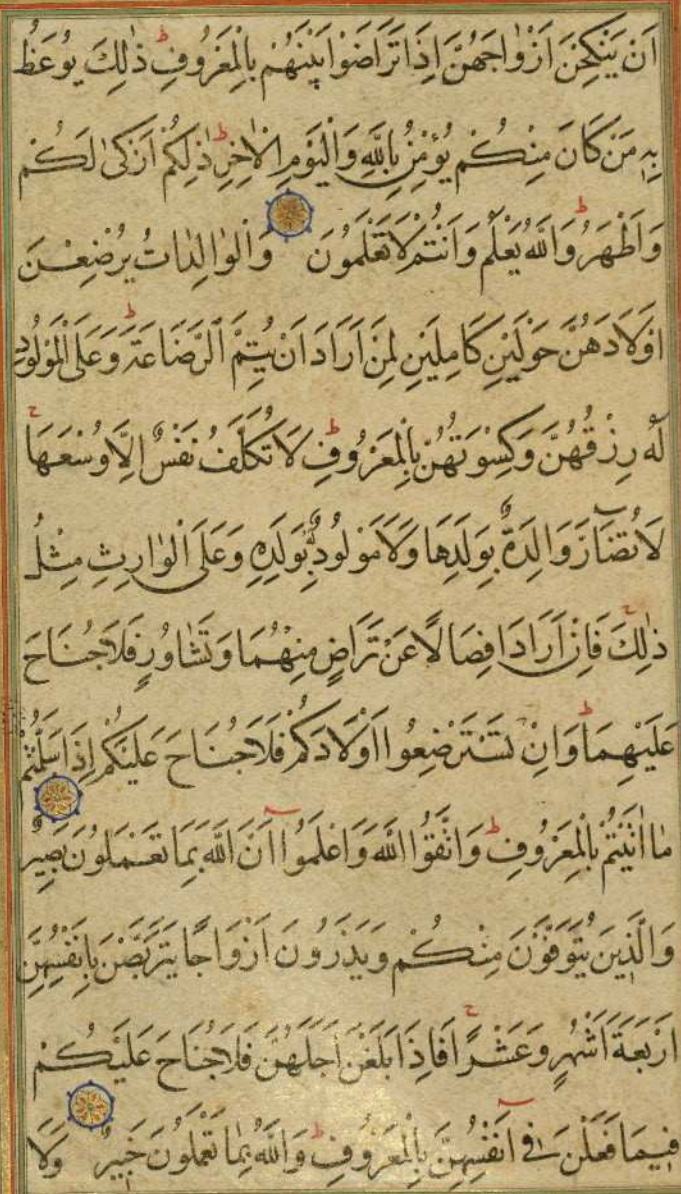 اَنْ يَنْكِحْنَ اَزْوَاجَهُنَّ اِذَا تَرَاضَوْا بَيْنَهُمْ بِالْمَعْرُوفِ ط ذٰلِكَ يُوعَظُ
بِهٖ مَنْ كَانَ مِنْكُمْ يُؤْمِنُ بِاللّٰهِ وَالْيَوْمِ الْاٰخِرِ ط ذٰلِكُمْ اَزْكٰى لَكُمْ
وَاَطْهَرُ ط وَاللّٰهُ يَعْلَمُ وَاَنْتُمْ لَا تَعْلَمُونَ وَالْوَالِدَاتُ يُرْضِعْنَ
اَوْلَادَهُنَّ حَوْلَيْنِ كَامِلَيْنِ لِمَنْ اَرَادَ اَنْ يُتِمَّ الرَّضَاعَةَ ط وَعَلَى الْمَوْلُودِ
لَهُ رِزْقُهُنَّ وَكِسْوَتُهُنَّ بِالْمَعْرُوفِ ط لَا تُكَلَّفُ نَفْسٌ اِلَّا وُسْعَهَا ج
لَا تُضَارَّ وَالِدَةٌ بِوَلَدِهَا وَلَا مَوْلُودٌ لَهُ بِوَلَدِهٖ وَعَلَى الْوَارِثِ مِثْلُ
ذٰلِكَ ج فَاِنْ اَرَادَا فِصَالًا عَنْ تَرَاضٍ مِنْهُمَا وَتَشَاوُرٍ فَلَا جُنَاحَ
عَلَيْهِمَا ط وَاِنْ اَرَدْتُمْ اَنْ تَسْتَرْضِعُوا اَوْلَادَكُمْ فَلَا جُنَاحَ عَلَيْكُمْ اِذَا سَلَّمْتُمْ
مَا اٰتَيْتُمْ بِالْمَعْرُوفِ ط وَاتَّقُوا اللّٰهَ وَاعْلَمُوا اَنَّ اللّٰهَ بِمَا تَعْمَلُونَ بَصِيرٌ
وَالَّذِينَ يُتَوَفَّوْنَ مِنْكُمْ وَيَذَرُونَ اَزْوَاجًا يَتَرَبَّصْنَ بِاَنْفُسِهِنَّ
اَرْبَعَةَ اَشْهُرٍ وَعَشْرًا ج فَاِذَا بَلَغْنَ اَجَلَهُنَّ فَلَا جُنَاحَ عَلَيْكُمْ
فِيمَا فَعَلْنَ فِي اَنْفُسِهِنَّ بِالْمَعْرُوفِ ط وَاللّٰهُ بِمَا تَعْمَلُونَ خَبِيرٌ وَلَا